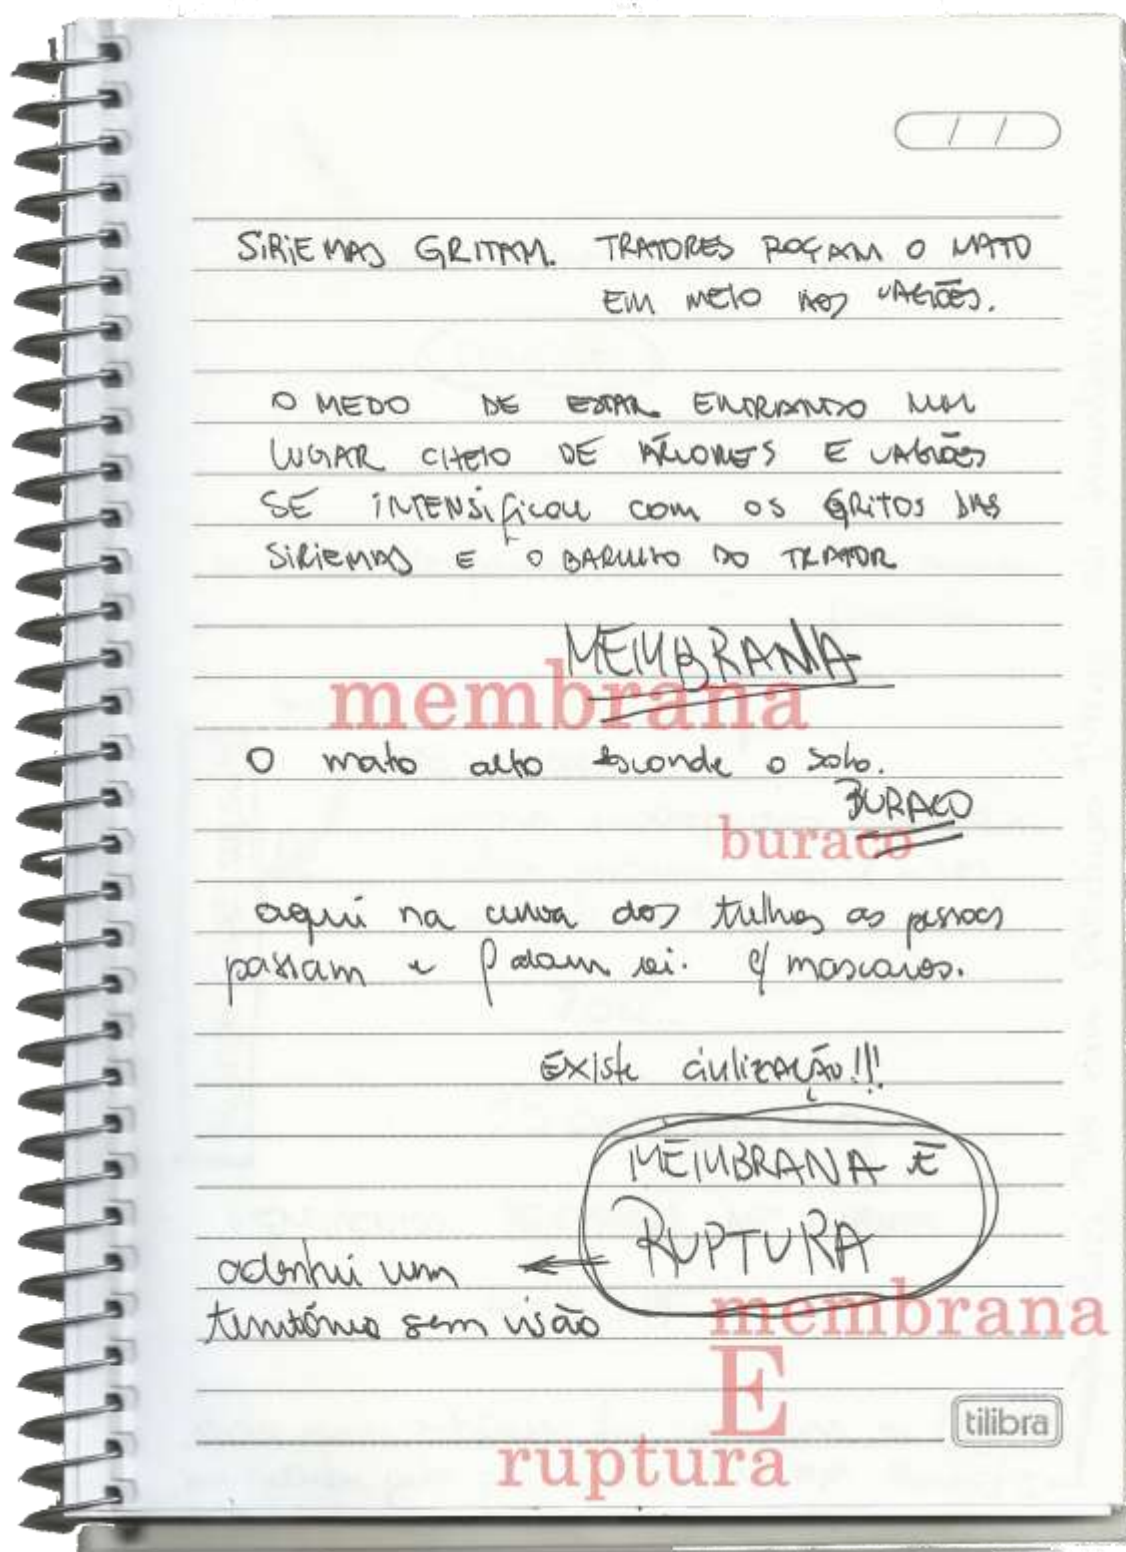 / /
SIRIEMAS GRITAM. TRATORES ROÇAM O MATO
EM MEIO AOS VAGÕES.
O MEDO DE ESTAR ENTRANDO NUM
LUGAR CHEIO DE ÁRVORES E VAGÕES
SE INTENSIFICOU COM OS GRITOS DAS
SIRIEMAS E O BARULHO DO TRATOR
MEMBRANA
membrana
O mato alto esconde o solo.
BURACO
buraco
aqui na curva dos trilhos as pessoas
passam e c/ mascaras.
EXISTE civilização!!!
MEMBRANA E
RUPTURA
adentrei um
território sem visão
membrana
E
ruptura
tilibra